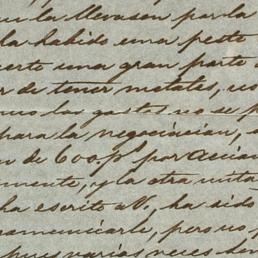 la llevasen por la
la habido una peste
cerlo una gran parte
r de tener metales, us
mos los gastos no se p
para la negociacion, s
n de 600 p.s por accion
mente, y la otra mitad
ha escrito a V, ha sido
comunicarle, pero us p
pues varias veces